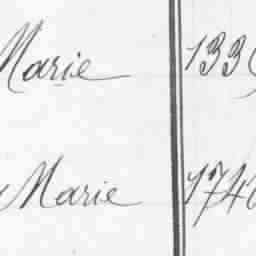 Marie 133
Marie 174